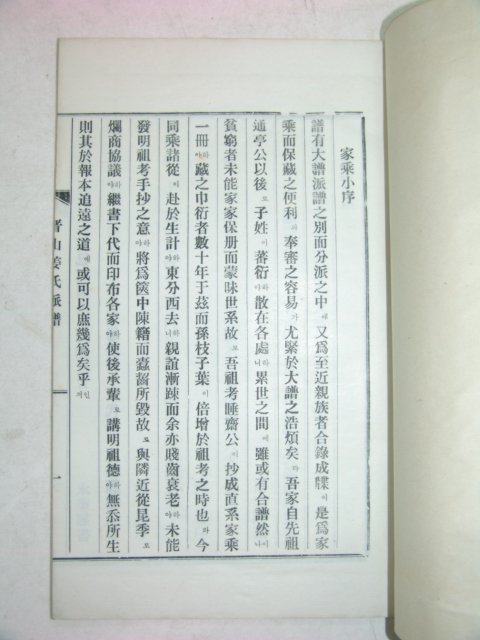 家乘小序
譜有大譜派譜之別而分派之中에又爲至近親族者合錄成牒이是爲家
乘而保藏之便利와奉審之容易가尤緊於大譜之浩煩矣라吾家自先祖
通亭公以後로子姓이蕃衍하야散在各處하니累世之間에雖或有合譜然이나
貧窮者未能家家保册而蒙昧世系故로吾祖考睡齋公이抄成直系家乘
一冊하야藏之巾衍者數十年于玆而孫枝子葉이倍增於祖考之時也라今
同乘諸從이赴於生計하야東分西去하니親誼漸踈而余亦賤齒衰老하야未能
發明祖考手抄之意하야將爲篋中陳籍而蠹齧所毁故로與隣近從昆季로
爛商協議하야繼書下代而印布各家하야使後承輩로講明祖德하야無忝所生
則其於報本追遠之道에或可以庶幾爲矣乎인저
晋山姜氏派譜
一